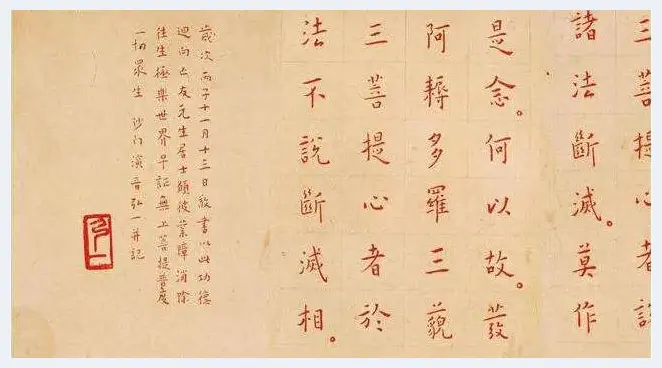 三菩提心者說
諸法斷滅。莫作
是念。何以故。發
阿耨多羅三藐
三菩提心者於
法不說斷滅相。
歲次丙子十一月十三日敬書以此功德
迴向亡友元生居士願彼業障消除
往生極樂世界早証無上菩提普度
一切眾生 沙門演音弘一并記
弘一